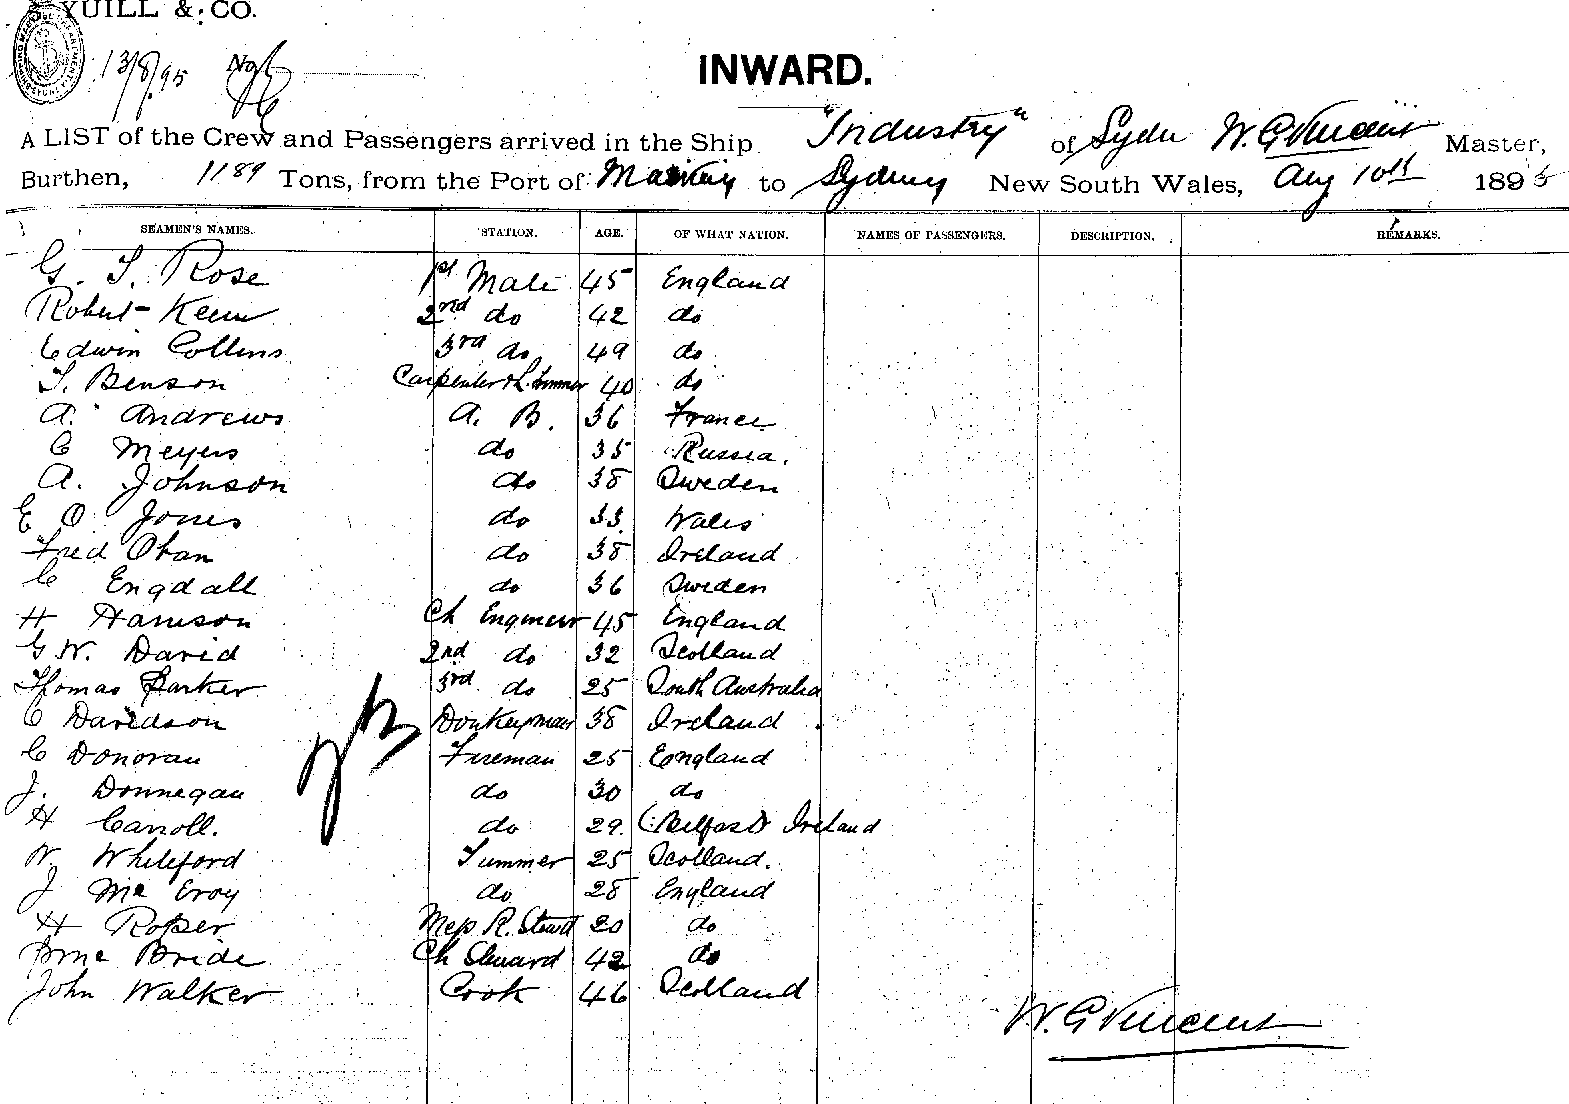 YUILL & CO.
13/8/95
INWARD.
A LIST of the Crew and Passengers arrived in the Ship "Industry" of Sydn W. G Vincent Master,
Burthen, 1189 Tons, from the Port of to Sydney New South Wales, Aug 10th 1895
SEAMEN'S NAMES. STATION. AGE. OF WHAT NATION. NAMES OF PASSENGERS. DESCRIPTION. REMARKS.
G. S. Rose 1st Mate 45 England
Robert Keen 2nd do 42 do
Edwin Collins 3rd do 49 do
T. Benson Carpenter & L. trimmer 40 do
A. Andrews A. B. 36 France
C Meyers do 35 Russia.
A. Johnson do 38 Sweden
E O Jones do 33 Wales
Fred Oban do 38 Ireland
C Engdall do 36 Sweden
H Harrison Ch Engineer 45 England
G W. David 2nd do 32 Scotland
Thomas Parker 3rd do 25 South Australia
C Davidson Donkeyman 38 Ireland
C Donovan Fireman 25 England
J. Donnegan do 30 do
H Carroll. do 29. (Belfast) Ireland
W. Whiteford Trimmer 25 Scotland.
J Mc Evoy do 28 England
H Roper Mess R. Stewd 20 do
Mc Bride Ch Steward 42 do
John Walker Cook 46 Scotland
W. G Vincent